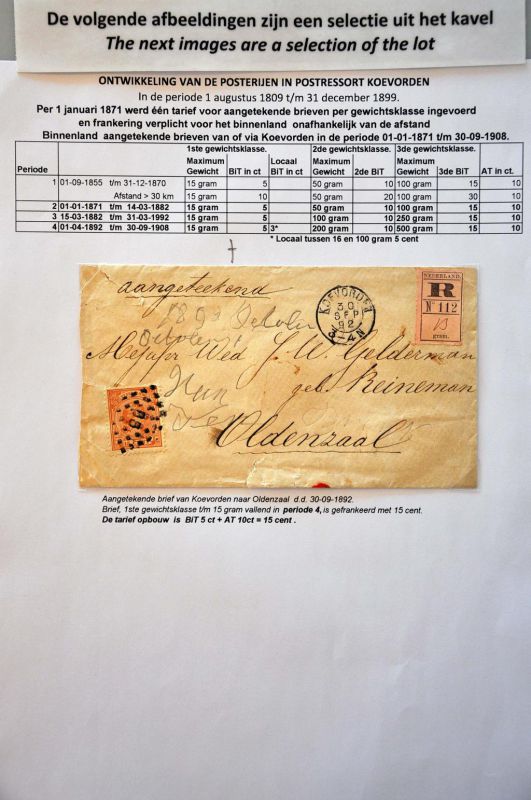 De volgende afbeeldingen zijn een selectie uit het kavel
The next images are a selection of the lot
ONTWIKKELING VAN DE POSTERIJEN IN POSTRESSORT KOEVORDEN
In de periode 1 augustus 1809 t/m 31 december 1899.
Per 1 januari 1871 werd één tarief voor aangetekende brieven per gewichtsklasse ingevoerd
en frankering verplicht voor het binnenland onafhankelijk van de afstand
Binnenland aangetekende brieven van of via Koevorden in de periode 01-01-1871 t/m 30-09-1908.
1ste gewichtsklasse. 2de gewichtsklasse. 3de gewichtsklasse.
Maximum Locaal Maximum Maximum
Periode Gewicht BiT in ct BiT in ct Gewicht 2de BiT Gewicht 3de BiT AT in ct.
1 01-09-1855 t/m 31-12-1870 15 gram 5 50 gram 10 100 gram 15 10
Afstand > 30 km 15 gram 10 50 gram 20 100 gram 30 10
2 01-01-1871 t/m 14-03-1882 15 gram 5 50 gram 10 100 gram 15 10
3 15-03-1882 t/m 31-03-1992 15 gram 5 100 gram 10 250 gram 15 10
4 01-04-1892 t/m 30-09-1908 15 gram 5 3* 200 gram 10 500 gram 15 10
* Locaal tussen 16 en 100 gram 5 cent
aangeteekend
KOEVORDEN
30
SEP
92
3-4N
NEDERLAND.
R
No 112
1892 October
October
Mejufvr Wed J. W. Gelderman
geb. Reineman
Oldenzaal
Aangetekende brief van Koevorden naar Oldenzaal d.d. 30-09-1892.
Brief, 1ste gewichtsklasse t/m 15 gram vallend in periode 4, is gefrankeerd met 15 cent.
De tarief opbouw is BiT 5 ct + AT 10ct = 15 cent .